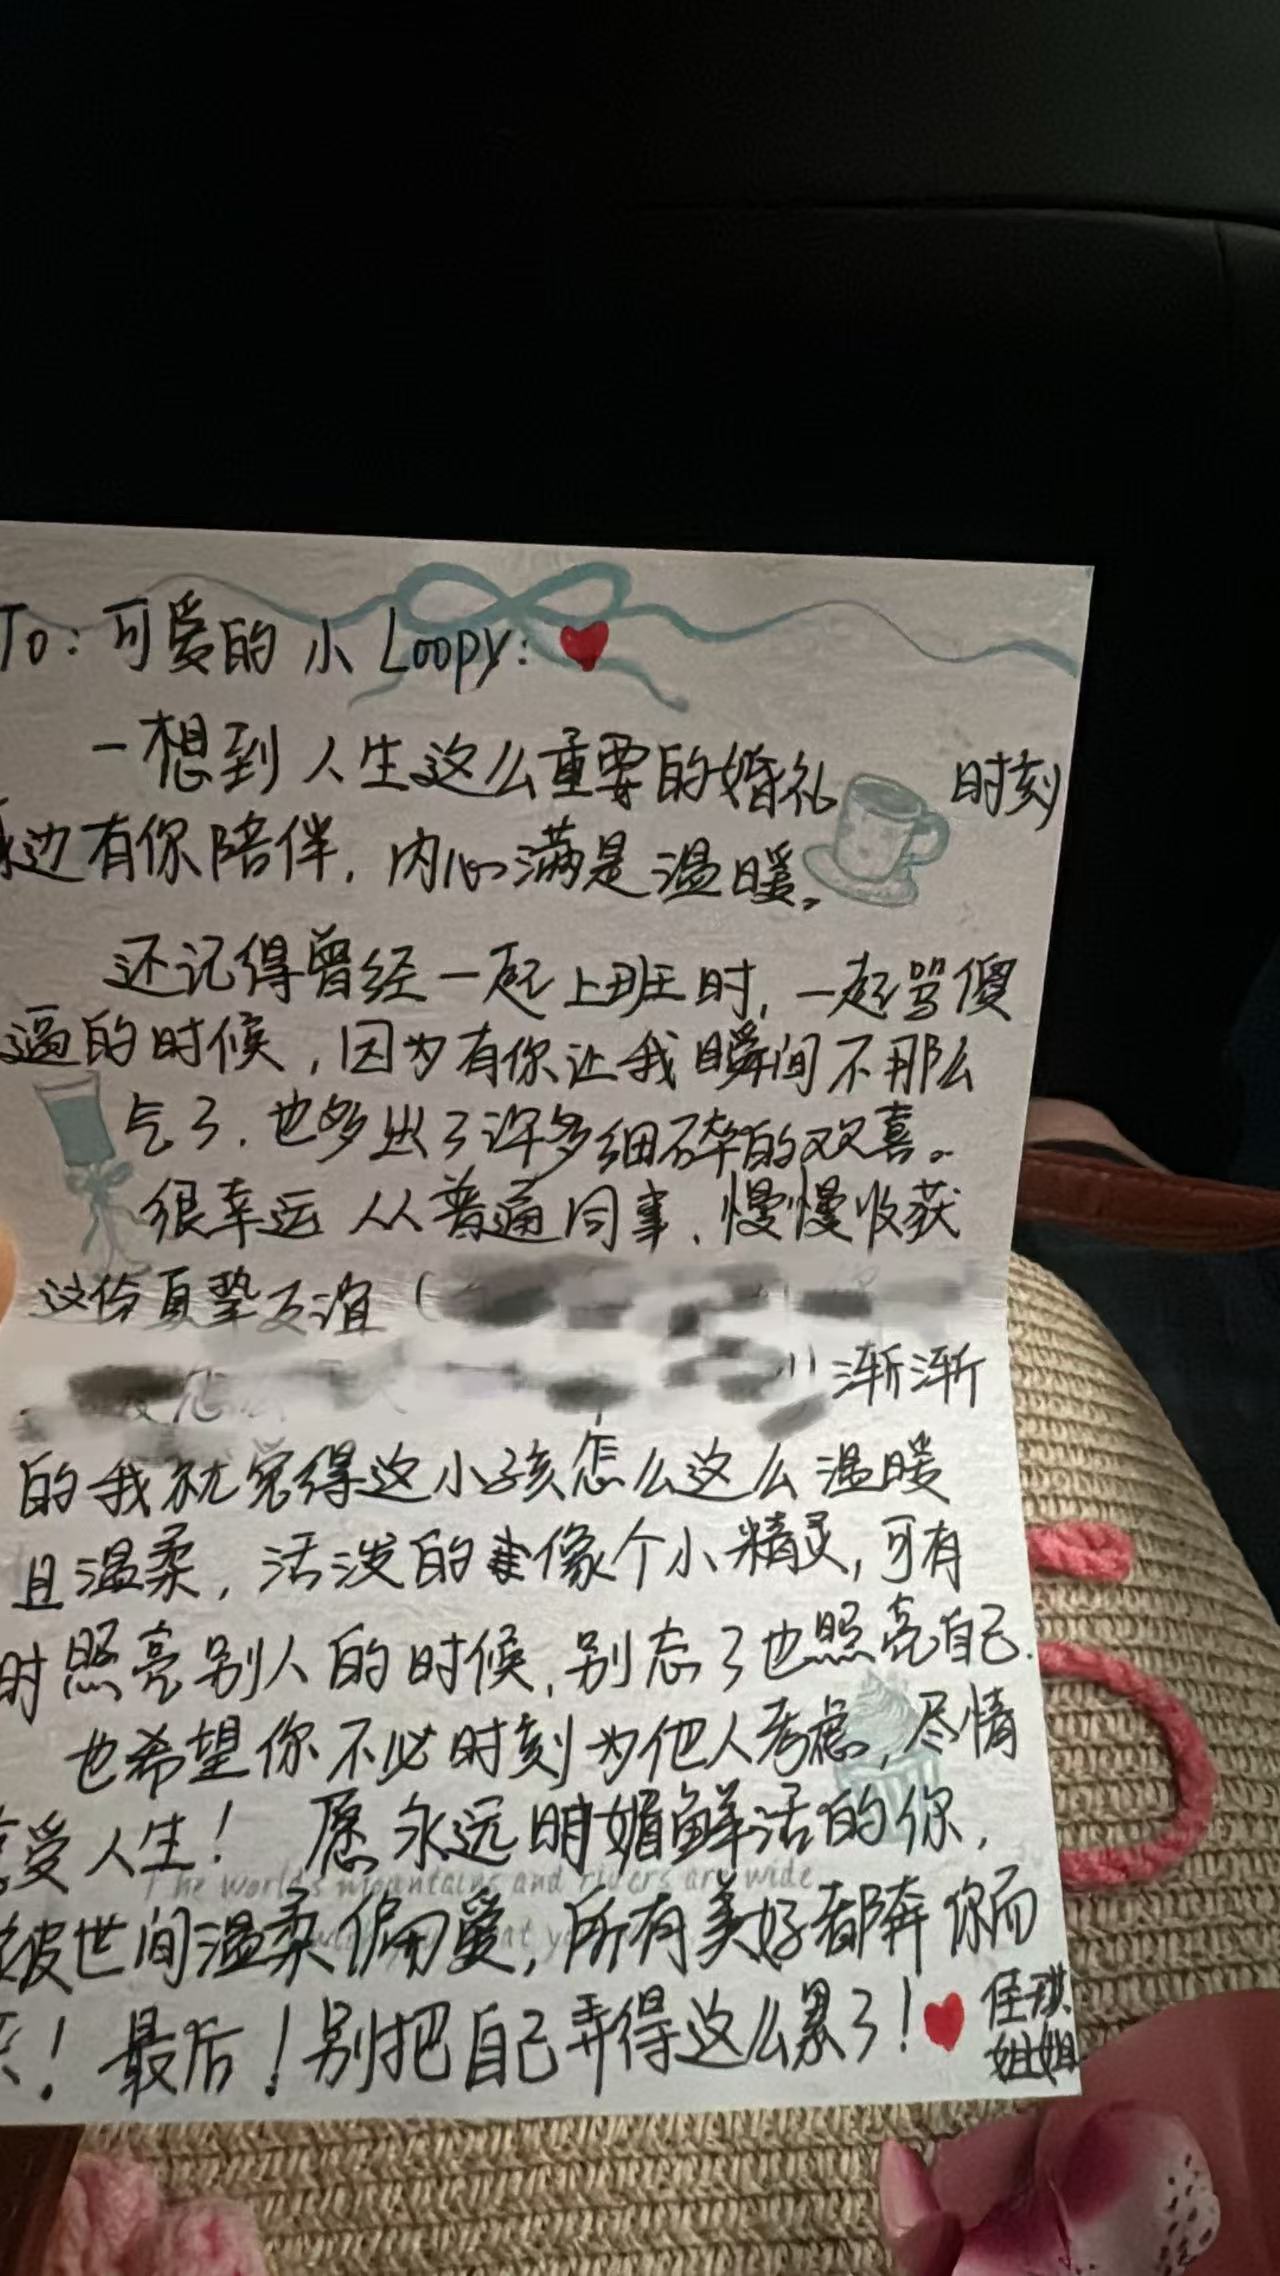 To: 可爱的小 Loopy:
一想到人生这么重要的婚礼 时刻
边有你陪伴, 内心满是温暖。
还记得曾经一起上班时, 一起骂傻
逼的时候, 因为有你让我瞬间不那么
气了. 也多出了许多细碎的欢喜。
很幸运 从普通同事、慢慢收获
这份真挚友谊 (
渐渐
的我就觉得这小孩怎么这么温暖
且温柔, 活泼的像个小精灵, 可有
时照亮别人的时候, 别忘了也照亮自己.
也希望你不必时刻为他人考虑, 尽情
享受人生! 愿永远明媚鲜活的你,
The world's mountains and rivers are wide
被世间温柔偏爱, 所有美好都奔你而
来! 最后! 别把自己弄得这么累了!
佳琪
姐姐